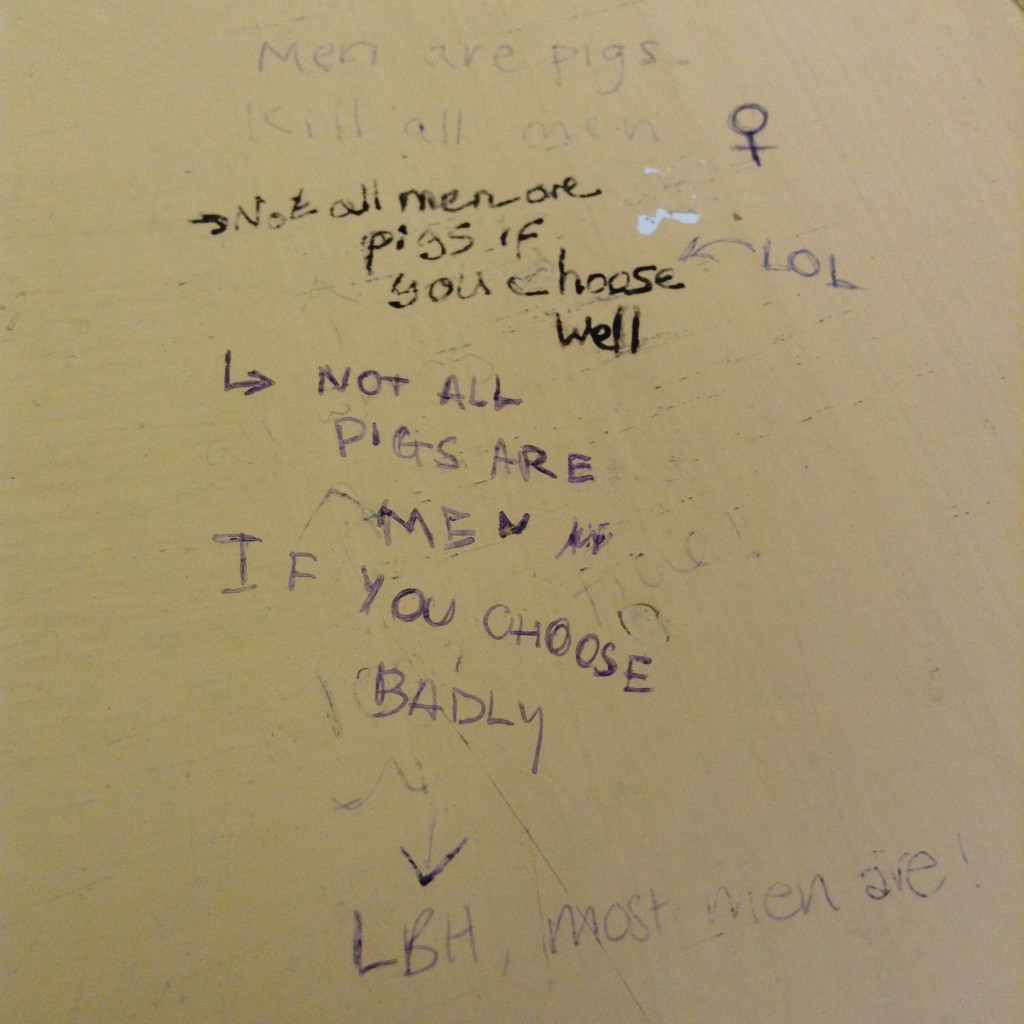 Men are pigs.
Kill all men
♀
→ Not all men are
pigs if
you choose
well
← LOL
↳ NOT ALL
PIGS ARE
MEN
IF YOU CHOOSE
BADLY
↓
LBH, most men are!